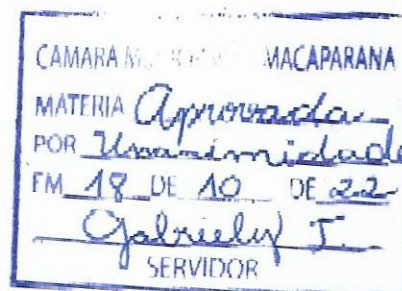 CÂMARA MUNICIPAL MACAPARANA
MATERIA Aprovada
POR Unanimidade
EM 18 DE 10 DE 22
Gabriely T.
SERVIDOR